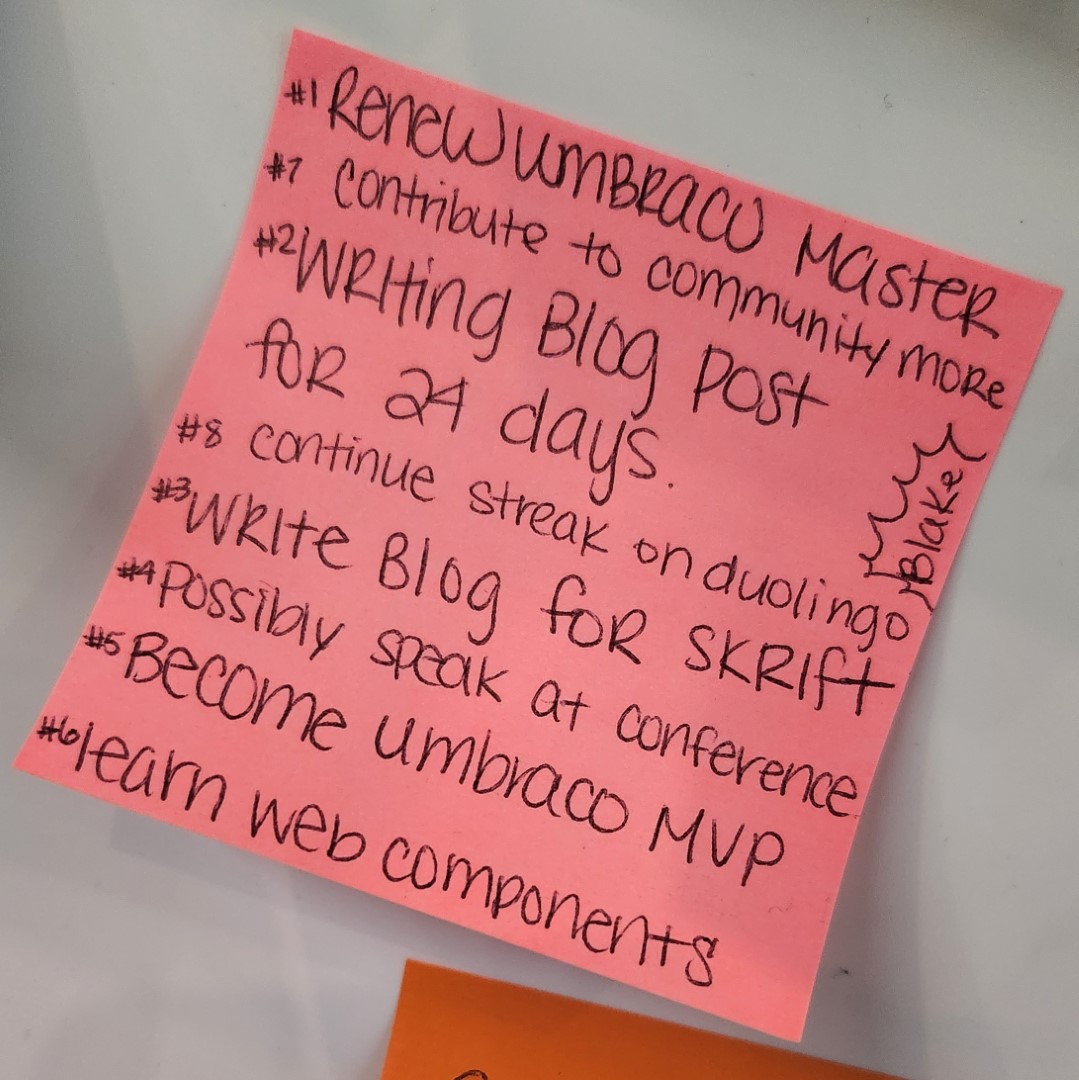 #1 Renew umBRaco MasteR
#7 contribute to community moRe
#2 WRiting Blog post
foR 24 days.
#8 continue streak on duolingo
#3 WRite Blog foR SKRift
#4 Possibly speak at conference
#5 Become umbraco MVP
#6 learn web components
Blake